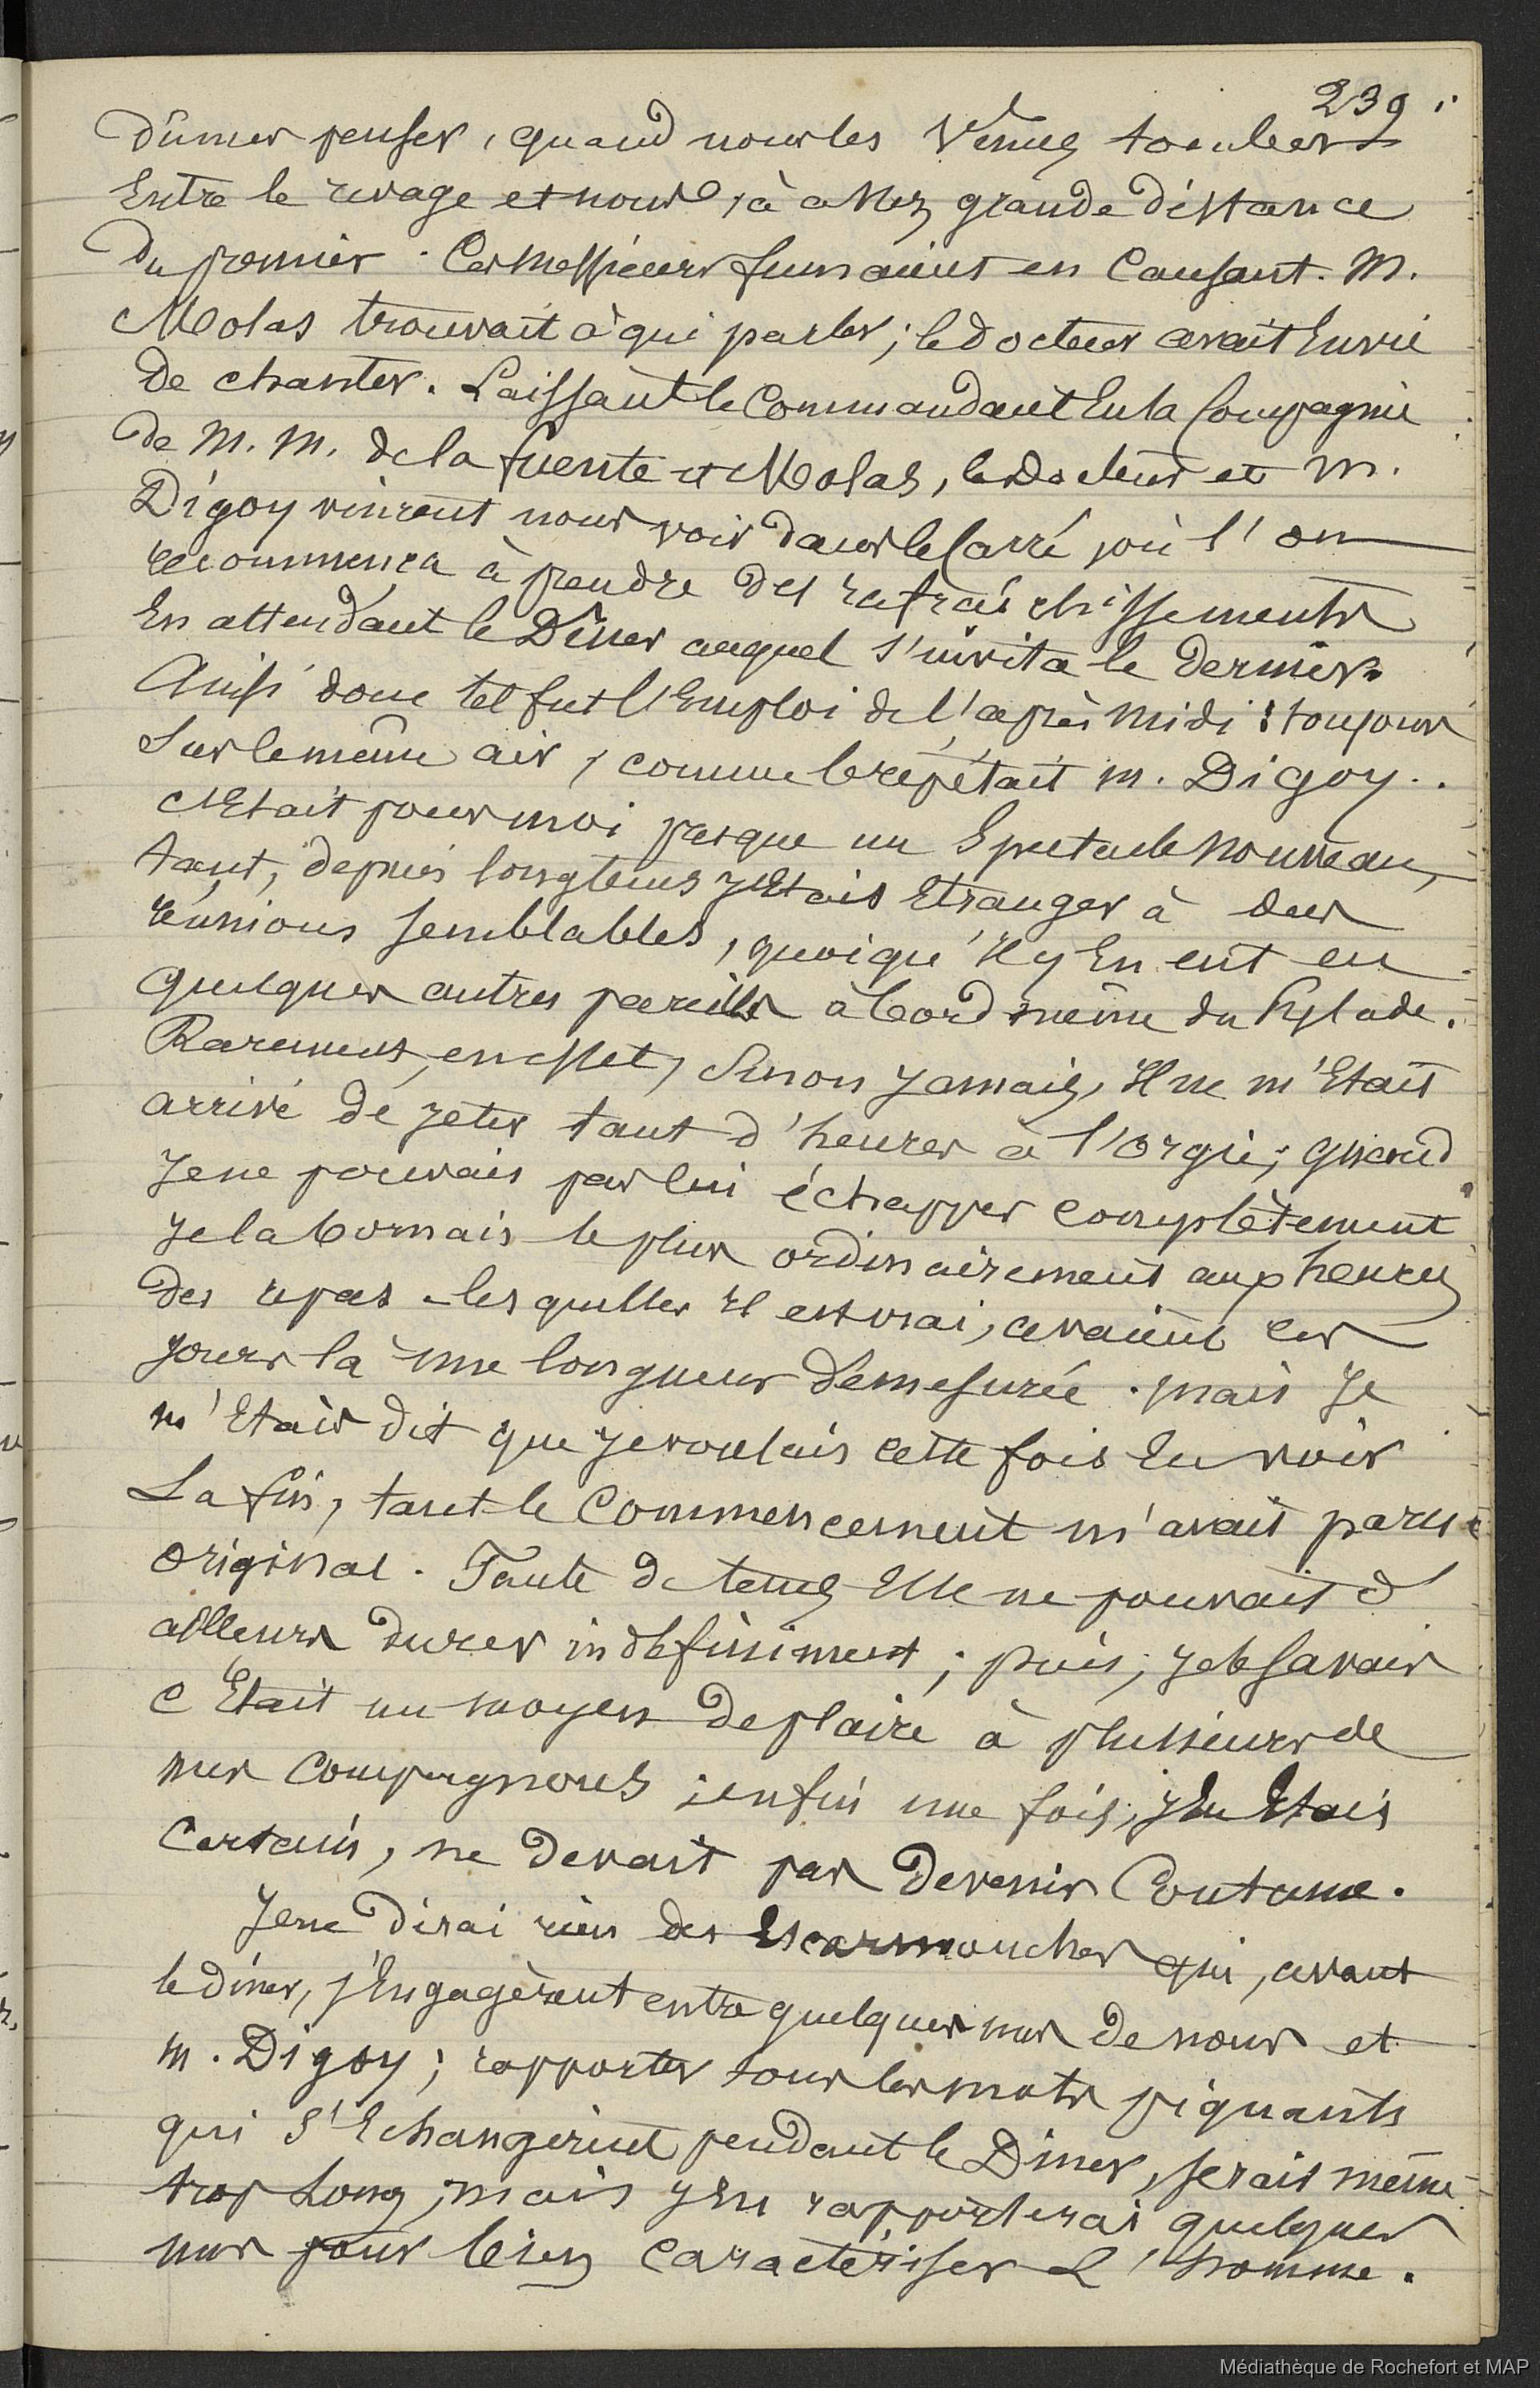 239.
dûmes penser, quand nous les vîmes tomber
Entre le rivage et nous, à assez grande distance
Du premier. Ces messieurs fumaient en causant. M.
Molas trouvait à qui parler; le docteur avait Envie
de chanter. Laissant le Commandant En la Compagnie
de M. M. de la fuente et Molas, le Docteur et M.
Digoy vinrent nous voir dans le Carré, où l'on
recommença à prendre des rafraichissements
En attendant le Dîner auquel s'invita le dernier.
Ainsi donc tel fut l'Emploi de l'après midi : toujours
Sur le même air, comme le répétait M. Digoy..
C'Etait pour moi presque un Spectacle nouveau,
tant, depuis longtems j'Etais Etranger à des
réunions semblables, quoiqu'Il y En eut eu
quelques autres pareilles à bord même du Pylade.
Rarement, en effet, Sinon Jamais, Il ne m'Etait
arrivé de jeter tant d'heures à l'Orgie; quand
Je ne pouvais pas lui échapper complètement
Je la bornais le plus ordinairement aux heures
des repas - lesquelles Il est vrai, avaient ces
Jours là une longueur démesurée. mais Je
m'Etais dit que je voulais cette fois En voir
La fin, tant le Commencement m'avait paru
Original. Faute de tems Elle ne pouvait d'
ailleurs durer indéfiniment; puis, je le savais
C'Etait un moyen de plaire à plusieurs de
mes Compagnons; enfin une fois, j'En Etais
Certain, ne devait pas devenir Coutume.
Je ne dirai rien des Escarmouches qui, avant
le dîner, s'Engagèrent entre quelques uns de nous et
M. Digoy; rapporter tous les mots piquants
qui s'Echangèrent pendant le Dîner, serait même
trop Long; mais j'En rapporterai quelques
uns pour bien caractériser L'homme.
Médiathèque de Rochefort et MAP